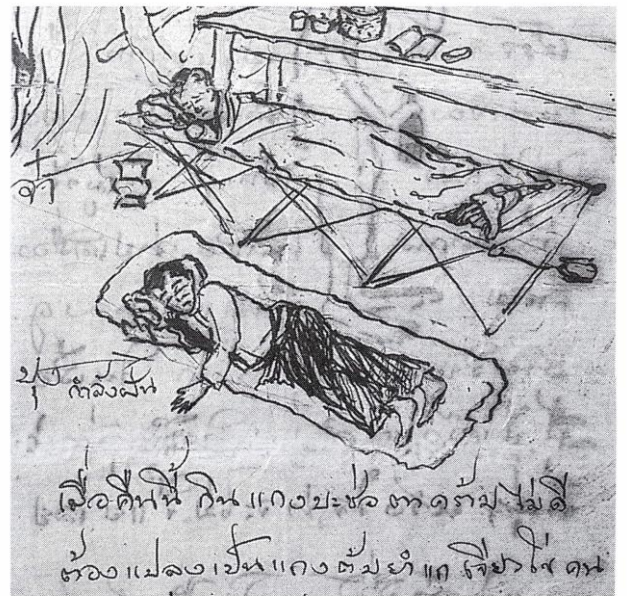 จ๋า
บุ๋ง กำลังฝัน
เมื่อคืนนี้ กินแกงบะช่อ ต้ม ไม่ดี
ต้องแปลงเป็นแกงต้มยำ แก เจียวไข่ คน